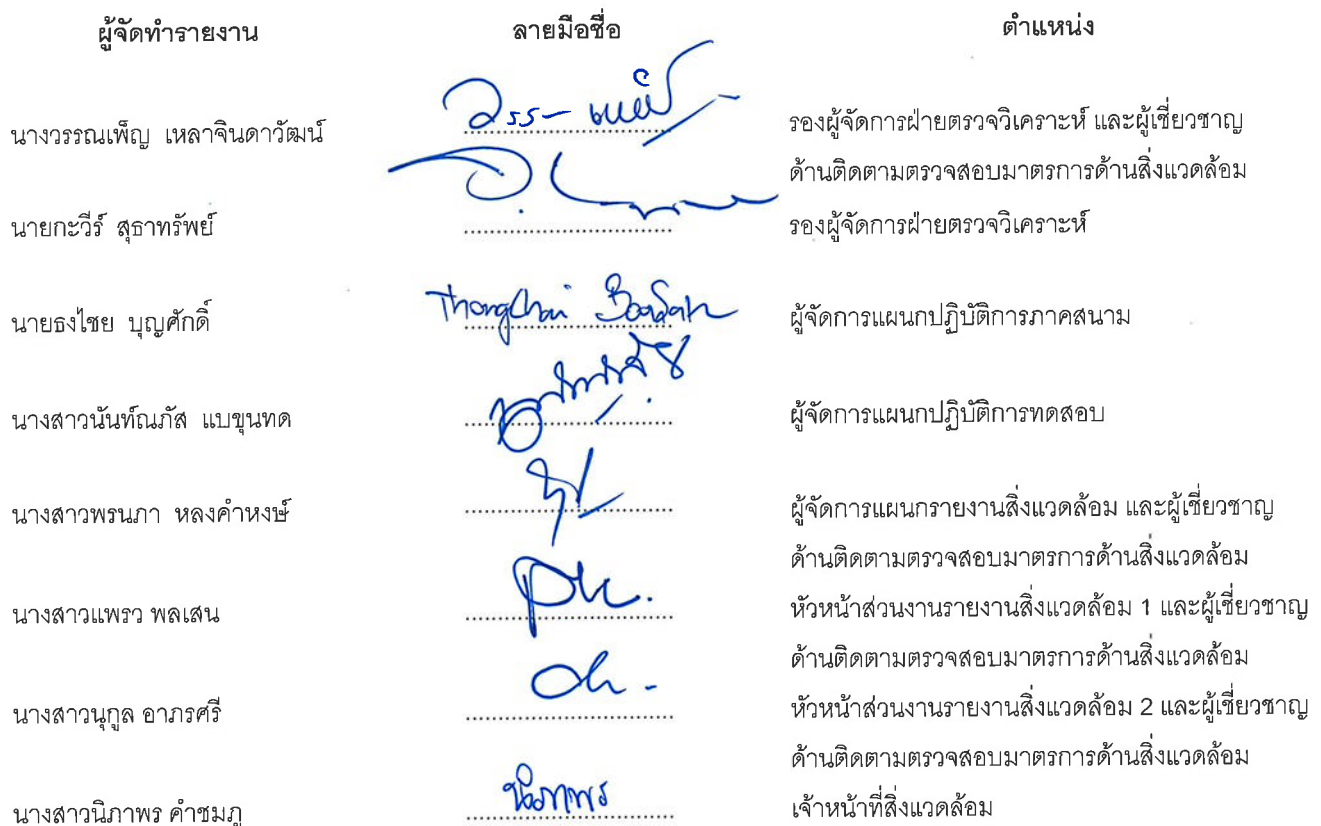 ผู้จัดทำรายงาน ลายมือชื่อ ตำแหน่ง
นางวรรณเพ็ญ เหลาจินดาวัฒน์ รองผู้จัดการฝ่ายตรวจวิเคราะห์ และผู้เชี่ยวชาญ
ด้านติดตามตรวจสอบมาตรการด้านสิ่งแวดล้อม
นายกะวีร์ สุธาทรัพย์ รองผู้จัดการฝ่ายตรวจวิเคราะห์
นายธงไชย บุญศักดิ์ Thongchai ผู้จัดการแผนกปฏิบัติการภาคสนาม
นางสาวนันท์ณภัส แบขุนทด ผู้จัดการแผนกปฏิบัติการทดสอบ
นางสาวพรนภา หลงคำหงษ์ ผู้จัดการแผนกรายงานสิ่งแวดล้อม และผู้เชี่ยวชาญ
ด้านติดตามตรวจสอบมาตรการด้านสิ่งแวดล้อม
นางสาวแพรว พลเสน หัวหน้าส่วนงานรายงานสิ่งแวดล้อม 1 และผู้เชี่ยวชาญ
ด้านติดตามตรวจสอบมาตรการด้านสิ่งแวดล้อม
นางสาวนุกูล อาภรศรี หัวหน้าส่วนงานรายงานสิ่งแวดล้อม 2 และผู้เชี่ยวชาญ
ด้านติดตามตรวจสอบมาตรการด้านสิ่งแวดล้อม
นางสาวนิภาพร คำชมภู นิภาพร เจ้าหน้าที่สิ่งแวดล้อม